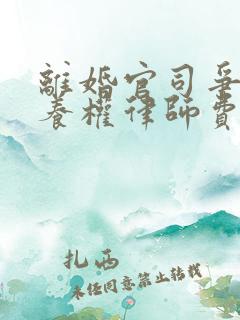 離婚官司爭
養權律師費
扎西
未經同意禁止轉載